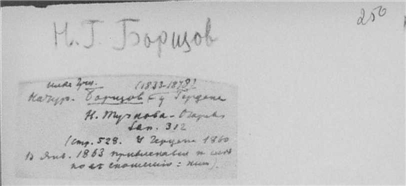 250
Н. Г. Борщов
(1833-1878)
Натур. Борщов у Герцена
Н. Тучкова-Огарева
Зап. 312
(стр. 528. У Герцена 1860
В янв. 1863 привлекался к
по сношению с ним).